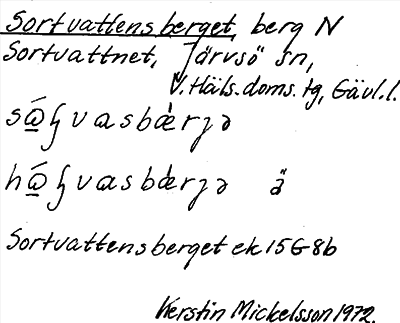 Sortvattensberget, berg N
Sortvattnet, Järvsö sn,
V. Häls. doms. tg, Gävl. l.
ä
Sortvattensberget ek 15 G 8b
Kerstin Mickelsson 1972.